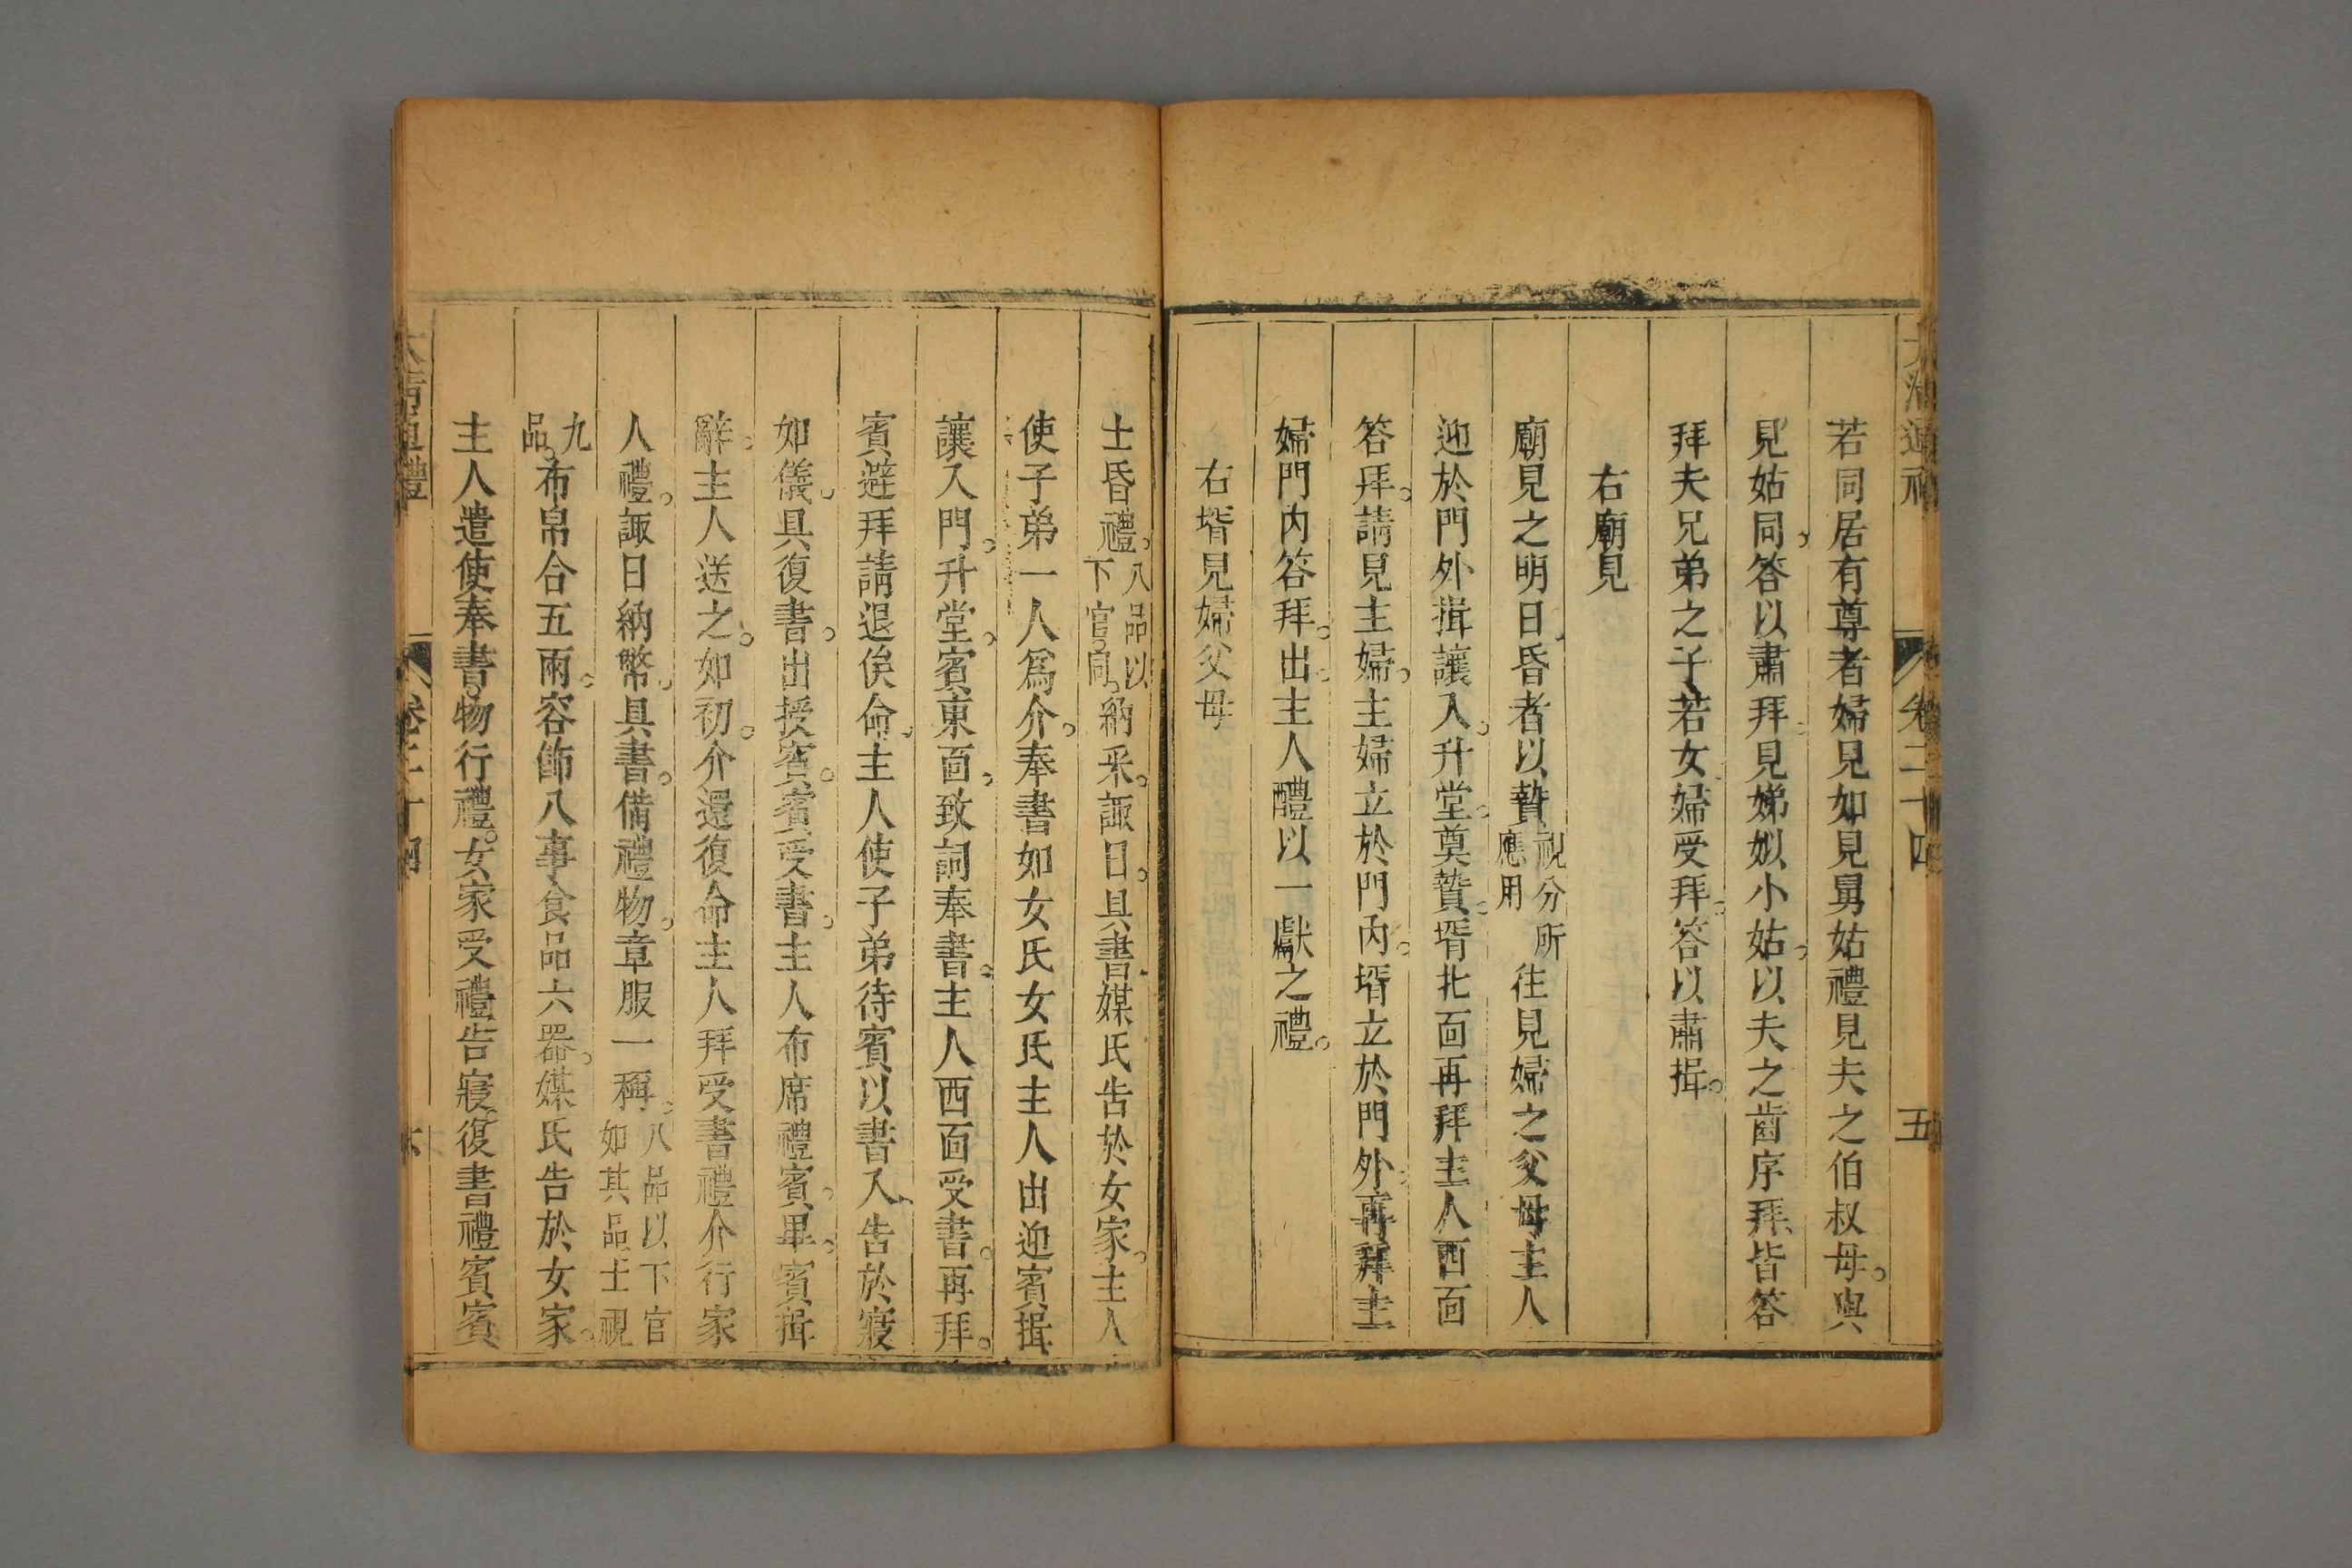 大清通禮 卷二十四 五
若同居有尊者婦見如見舅姑禮見夫之伯叔母。與
見姑同。答以肅拜。見娣姒小姑。以夫之齒序拜。皆答
拜夫兄弟之子若女婦受拜。答以肅揖。
右廟見
廟見之明日。昏者以贄視分所應用往見婦之父母主人
迎於門外揖讓入。升堂。奠贄。壻北面再拜主人西面
答拜。請見主婦。主婦立於門內。壻立於門外。再拜主
婦門內答拜。出。主人醴以一獻之禮。
右壻見婦父母
士昏禮。八品以下官同。納采。諏日。具書。媒氏告於女家。主人
使子弟一人爲介。奉書如女氏女氏主人出迎賓揖
讓入門。升堂。賓東面。致詞奉書。主人西面受書。再拜。
賓避拜請退俟命。主人使子弟待賓以書入。告於寢
如儀。具復書。出授賓。賓受書。主人布席禮賓。畢。賓揖
辭。主人送之。如初。介還復命主人拜受書禮介行家
人禮。諏日納幣。具書。備禮物。章服一稱。八品以下官如其品士視
九品。布帛合五兩。容飾八事食品六器。媒氏告於女家。
主人遣使奉書。物行禮。女家受禮告寢。復書禮賓賓
大清通禮 卷二十四 六